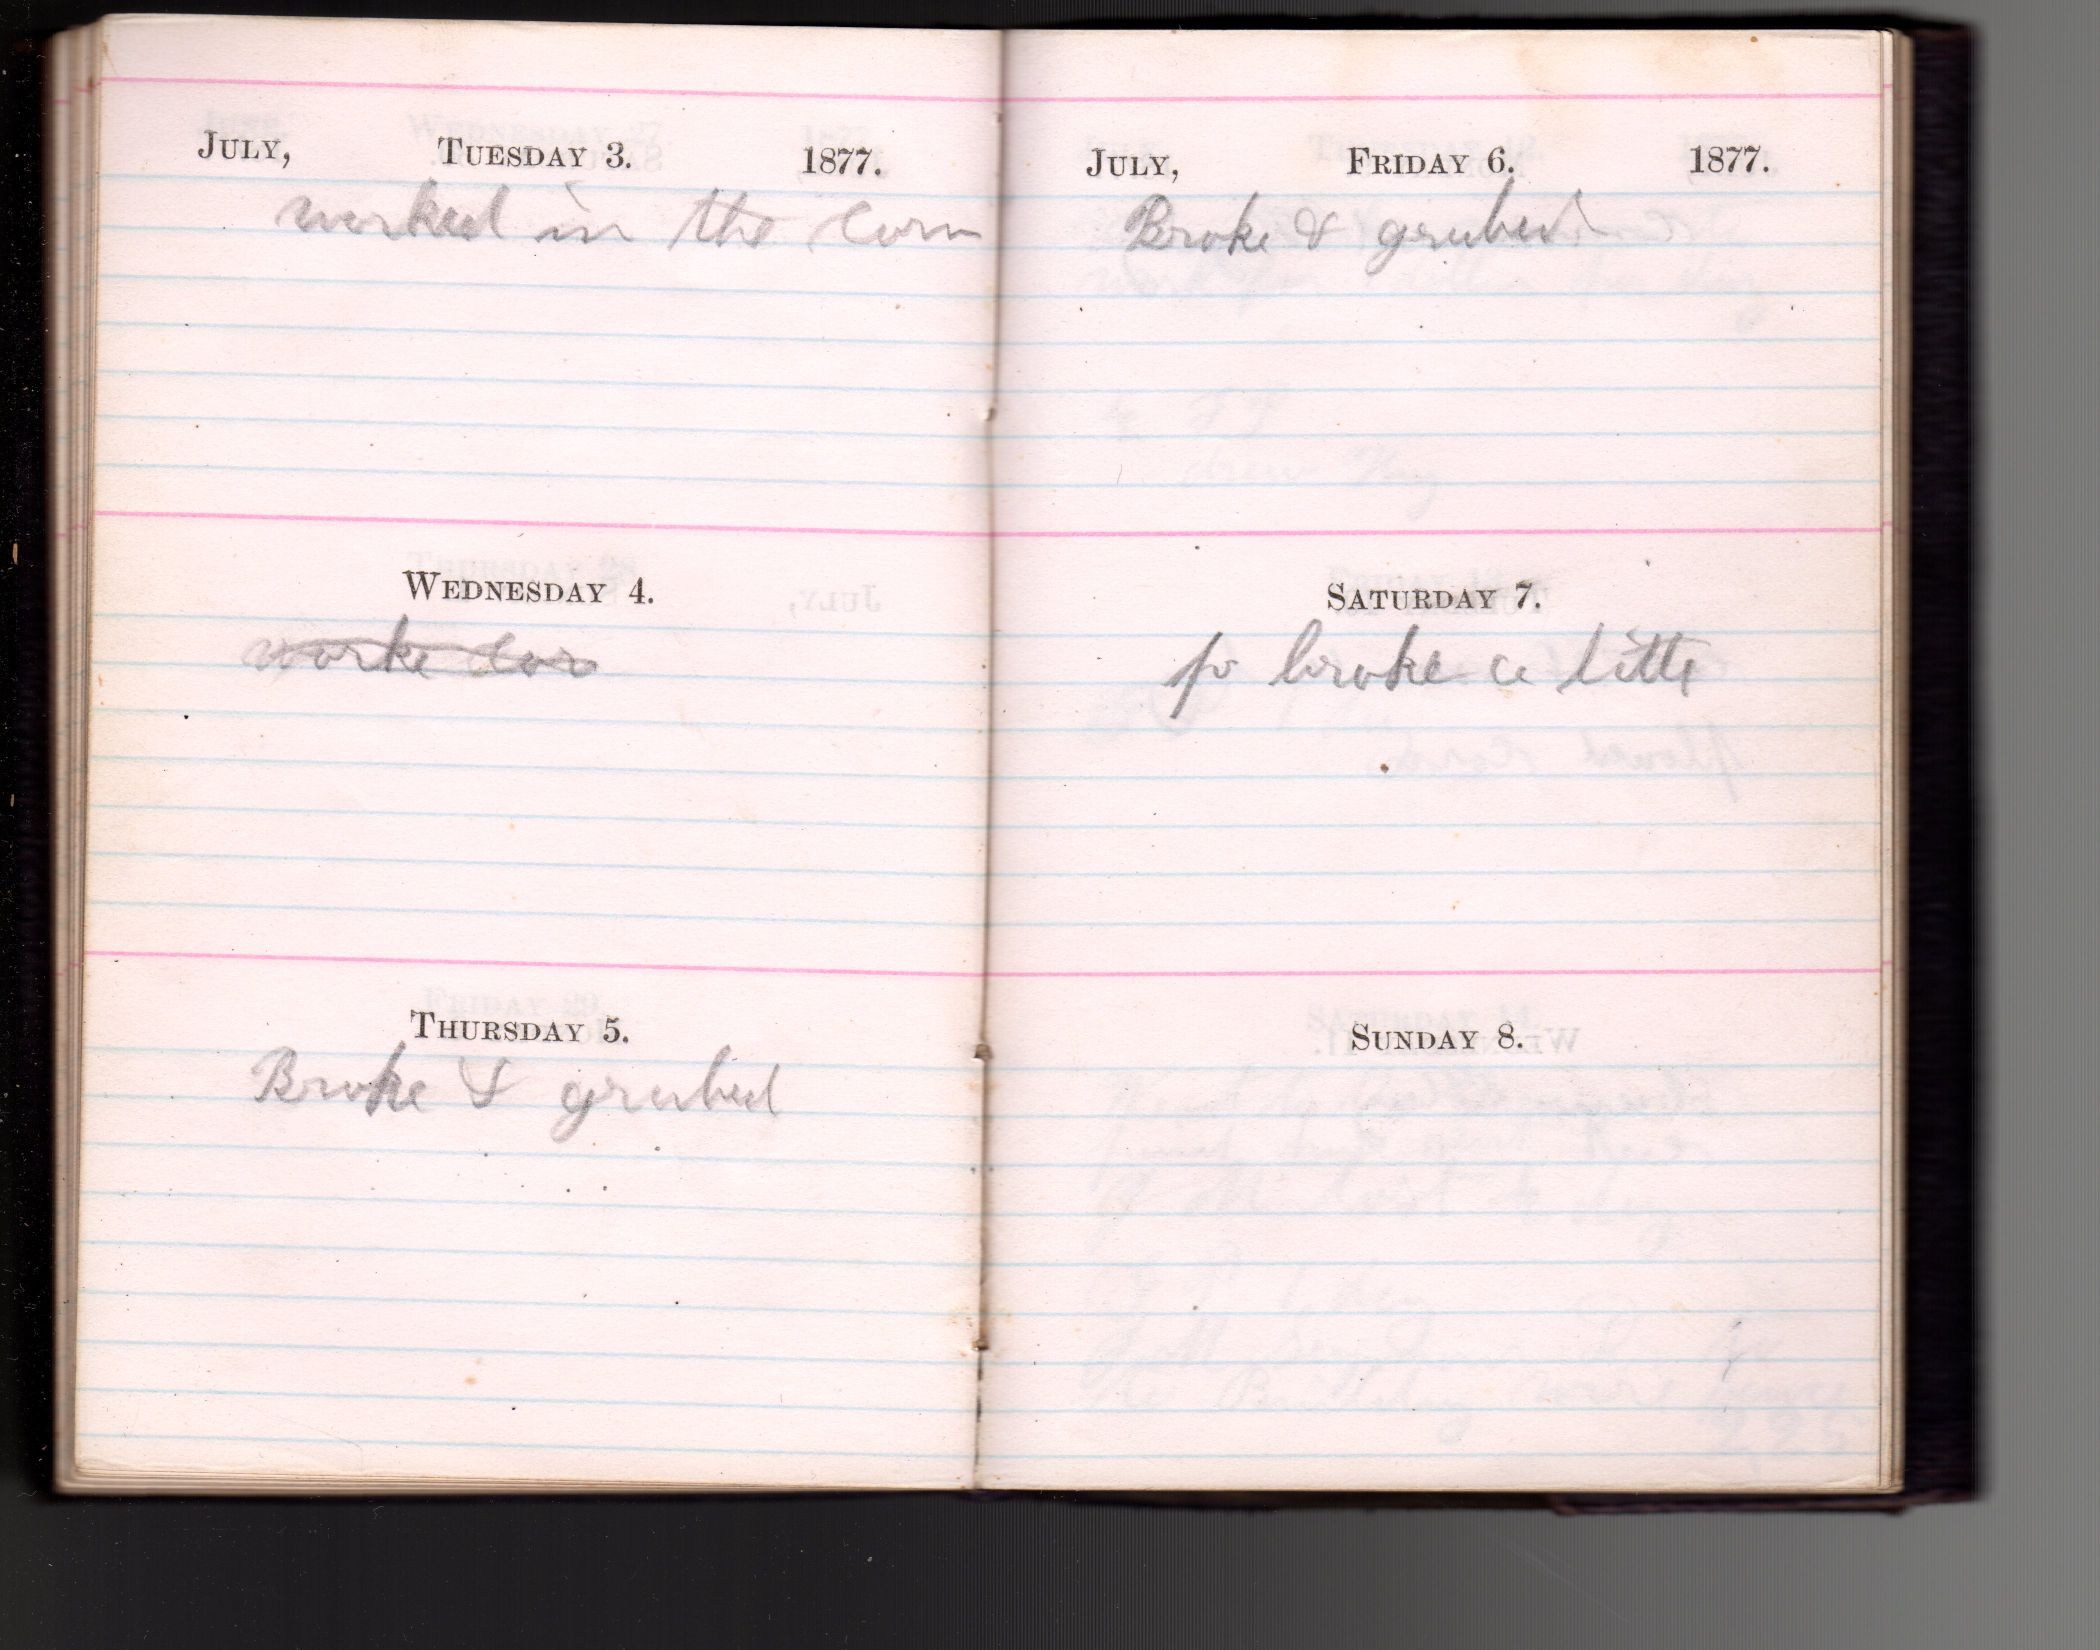 JULY, TUESDAY 3. 1877.
worked in the corn
WEDNESDAY 4.
worke cor
THURSDAY 5.
Broke & grubed
JULY, FRIDAY 6. 1877.
Broke & grubed
SATURDAY 7.
broke a litte
SUNDAY 8.